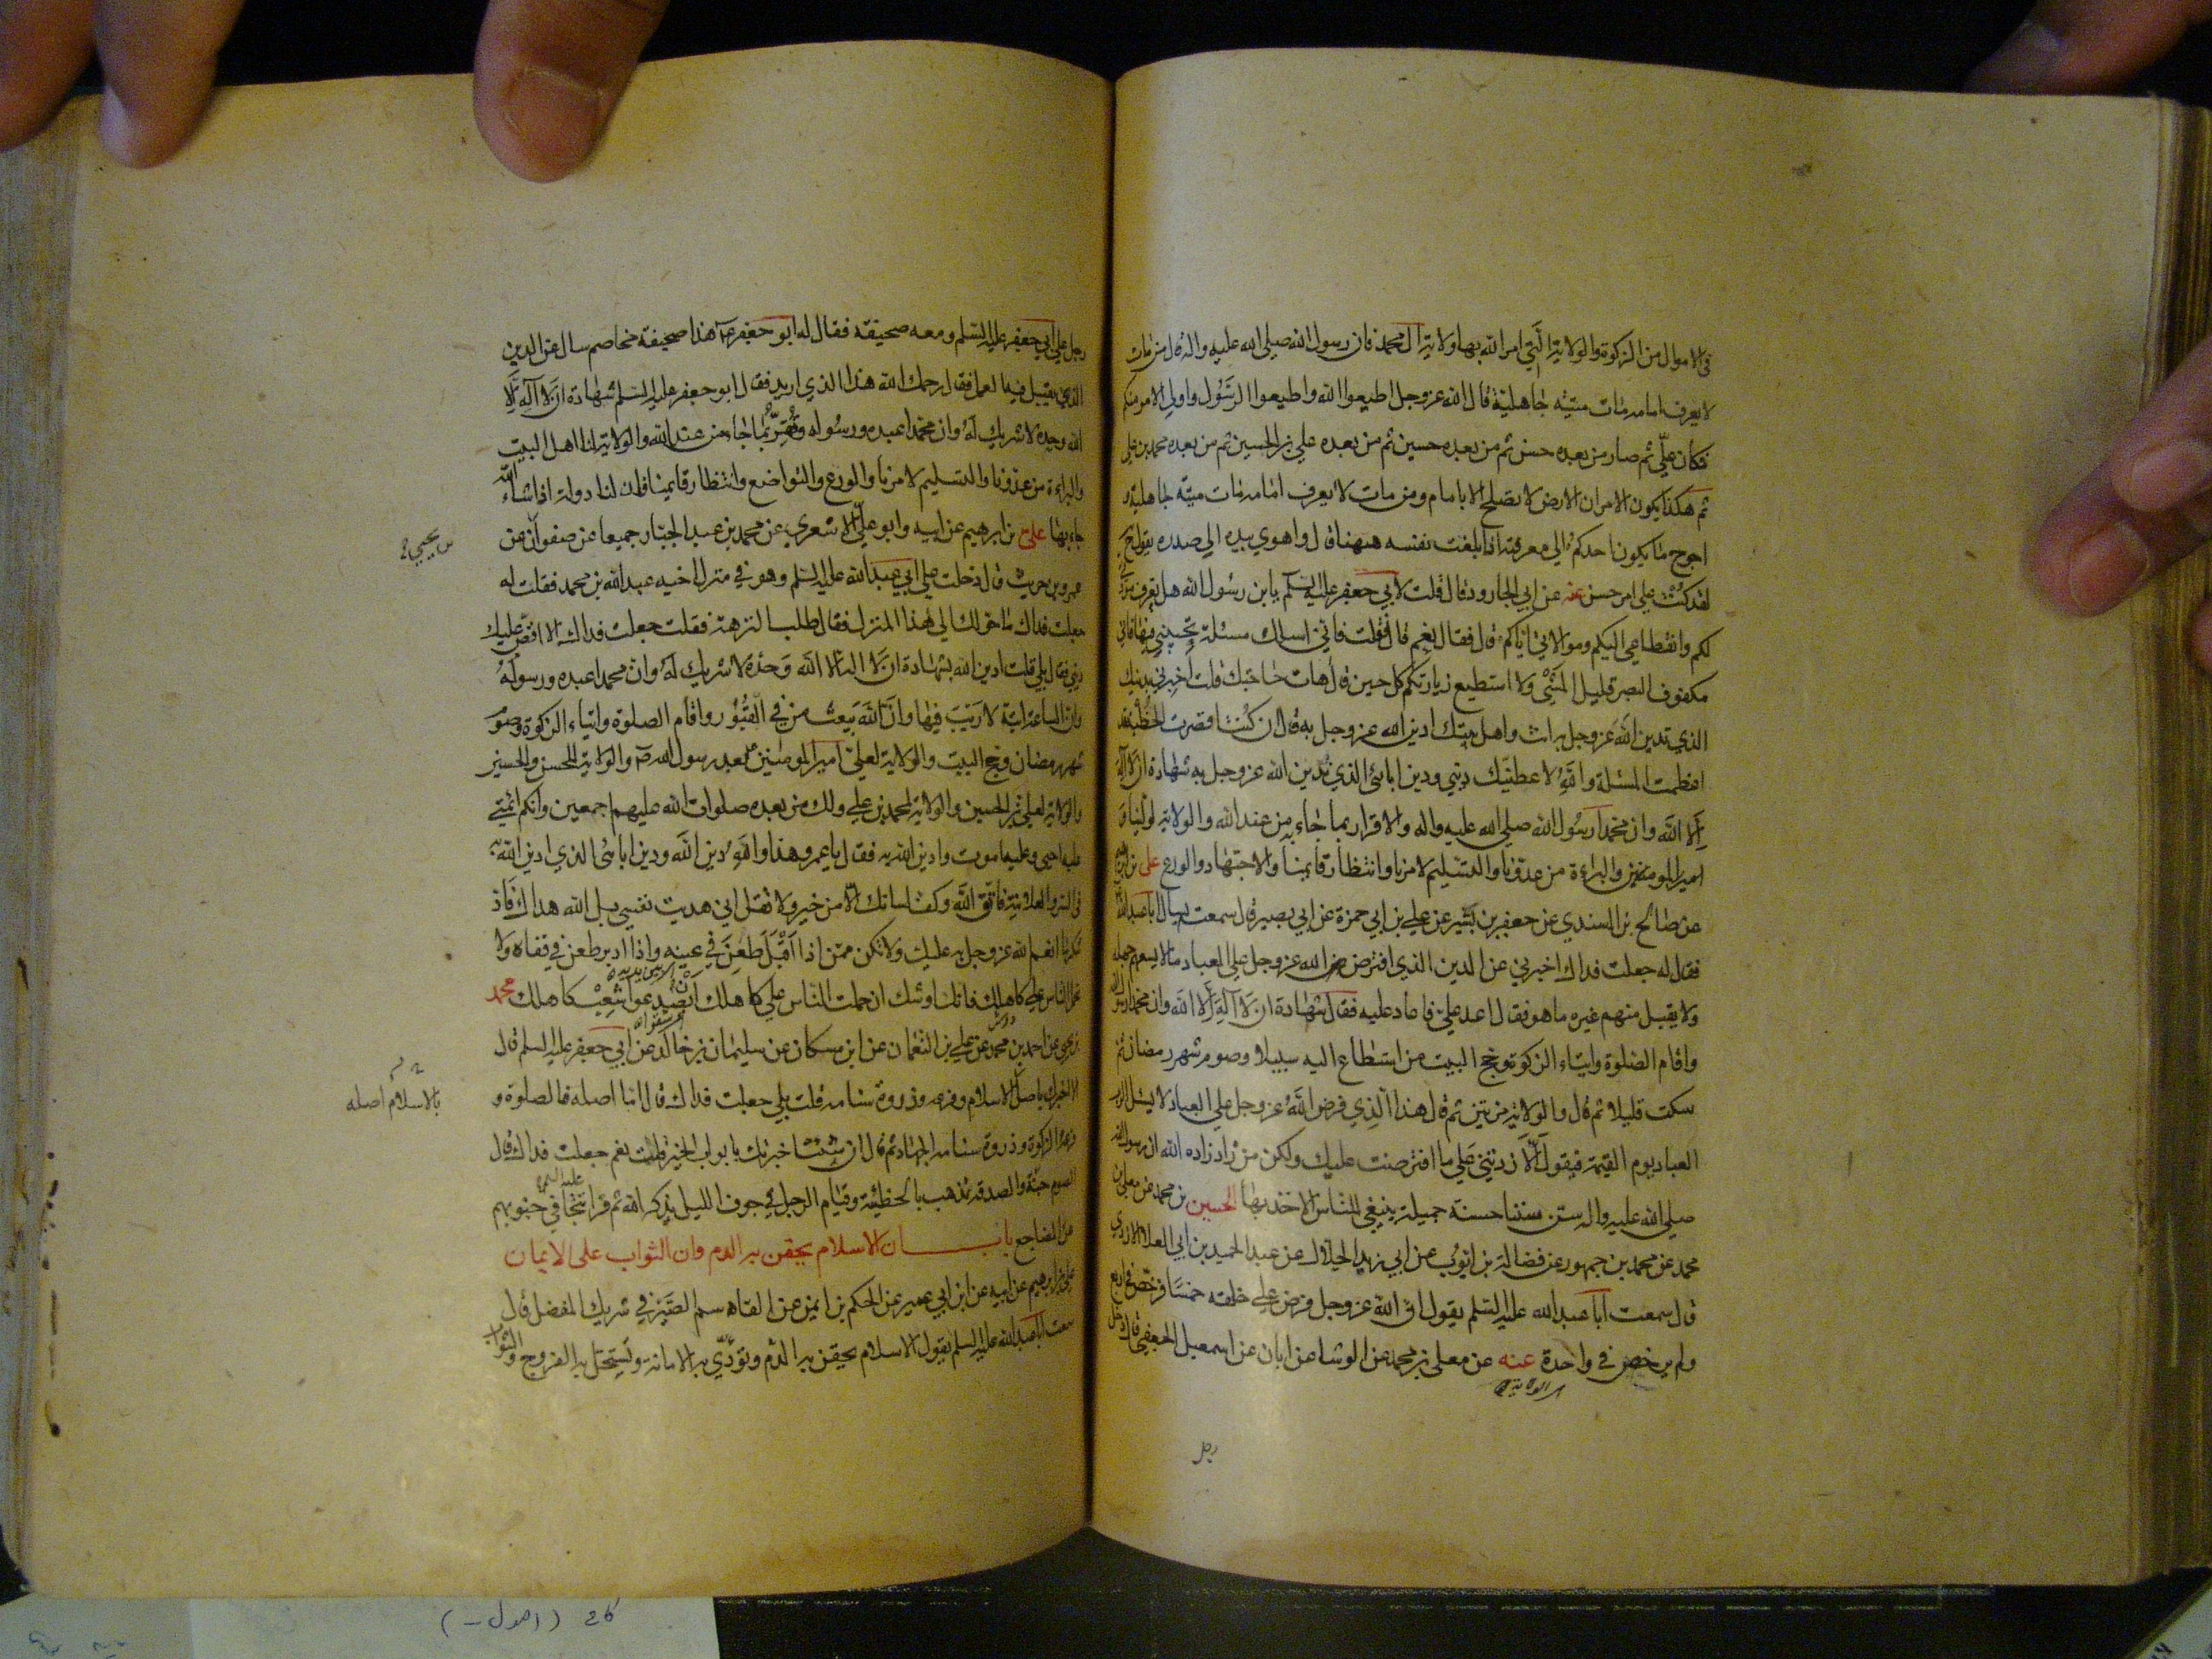 في الاموال من الزكوة والولاية التي امر الله بها ولاية ال محمد فان رسول الله صلى الله عليه واله قال من مات
لا يعرف امامه مات ميتة جاهلية قال الله عز وجل اطيعوا الله واطيعوا الرسول واولي الامر منكم
فكان علي ثم صار من بعده حسن ثم من بعده حسين ثم من بعده علي بن الحسين ثم من بعده محمد بن علي
ثم هكذا يكون الامر ان الارض لا يصلح الا بامام ومن مات لا يعرف امامه مات ميتة جاهلية و
احوج ما يكون احدكم الى معرفته اذا بلغت نفسه ههنا قال واهوى بيده الى صدره يقول ح
لقد كنت على امر حسن عنه عن ابي الجارود قال قلت لابي جعفر عليه السلم يا بن رسول الله هل تعرف مودتي
لكم وانقطاعي اليكم وموالاتي اياكم قال فقال نعم قال فقلت فاني اسالك مسئلة تجيبني فيها فاني
مكفوف البصر قليل المشي ولا استطيع زيارتكم كل حين قال هات حاجتك قلت اخبرني بدينك
الذي تدين الله عز وجل به انت واهل بيتك ادين الله عز وجل به قال ان كنت اقصرت الخطبة فقد
اعظمت المسئلة والله لاعطينك ديني ودين ابائي الذي ندين الله عز وجل به شهادة ان لا اله
الا الله وان محمدا رسول الله صلى الله عليه واله والاقرار بما جاء به من عند الله والولاية لولينا و
البراءة من عدونا والتسليم لامرنا وانتظار قايمنا والاجتهاد والورع علي بن ابرهيم
عن صالح بن السندي عن جعفر بن بشير عن علي بن ابي حمزة عن ابي بصير قال سمعت يسال ابا عبد الله
فقال له جعلت فداك اخبرني عن الدين الذي افترض الله عز وجل على العباد ما لا يسعهم جهله
ولا يقبل منهم غيره ما هو فقال اعد علي فاعاد عليه فقال شهادة ان لا اله الا الله وان محمدا رسول الله
واقام الصلوة وايتاء الزكوة وحج البيت من استطاع اليه سبيلا وصوم شهر رمضان ثم
سكت قليلا ثم قال والولاية مرتين ثم قال هذا الذي فرض الله عز وجل على العباد لا يسئل الرب
العباد يوم القيمة فيقول الا زدتني على ما افترضت عليك ولكن من زاد زاده الله ان رسول الله
صلى الله عليه واله سن سننا حسنة جميلة ينبغي للناس الاخذ بها الحسين بن محمد عن معلى بن
محمد عن محمد بن جمهور عن فضالة بن ايوب عن ابي زيد الحلال عن عبد الحميد بن ابي العلا الازدي
قال سمعت ابا عبد الله عليه السلم يقول ان الله عز وجل فرض على خلقه خمسا فرخص في اربع
ولم يرخص في واحدة عنه عن معلى بن محمد عن الوشا عن ابان عن اسمعيل الجعفي قال دخل
رجل
رجل على ابي جعفر عليه السلم ومعه صحيفة فقال له ابو جعفر هذا صحيفة مخاصم سال عن الدين
الذي يقبل فيه العمل فقال رحمك الله هذا الذي اريد فقال ابو جعفر عليه السلم شهادة ان لا اله الا
الله وحده لا شريك له وان محمدا عبده ورسوله وتقر بما جاء من عند الله والولاية لنا اهل البيت
والبراءة من عدونا والتسليم لامرنا والورع والتواضع وانتظار قايمنا فان لنا دولة اذا شاء الله
جاء بها علي بن ابرهيم عن ابيه وابو علي الاشعري عن محمد بن عبد الجبار جميعا عن صفوان عن
بن يحيى
عمرو بن حريث قال دخلت على ابي عبد الله عليه السلم وهو في منزل اخيه عبد الله بن محمد فقلت له
جعلت فداك ما حولك الى هذا المنزل فقال طلب النزهة فقلت جعلت فداك الا اقص عليك
ديني فقال بلى قلت ادين الله بشهادة ان لا اله الا الله وحده لا شريك له وان محمدا عبده ورسوله
وان الساعة اتية لا ريب فيها وان الله يبعث من في القبور واقام الصلوة وايتاء الزكوة وصوم
شهر رمضان وحج البيت والولاية لعلي امير المومنين بعد رسول الله ص والولاية للحسن والحسين
والولاية لعلي بن الحسين والولاية لمحمد بن علي ولك من بعده صلوات الله عليهم اجمعين وانكم ائمتي
عليه احيى وعليه اموت وادين الله به فقال يا عمرو هذا والله دين الله ودين ابائي الذي ادين الله به
في السر والعلانية فاتق الله وكف لسانك الا من خير ولا تقل اني هديت نفسي بل الله هداك فاد
شكر ما انعم الله عز وجل به عليك ولا تكن ممن اذا اقبل طعن في عينه واذا ادبر طعن في قفاه ولا
تحمل الناس على كاهلك فانك اوشك ان حملت الناس على كاهلك ان يصدعوا شعب كاهلك محمد
بن يحيى عن احمد بن محمد عن علي بن النعمان عن ابن مسكان عن سليمان بن خالد عن ابي جعفر عليه السلم قال
الا اخبرك باصل الاسلام وفرعه وذروة سنامه قلت بلى جعلت فداك قال اما اصله فالصلوة و
بالاسلام اصله
فرعه الزكوة وذروة سنامه الجهاد ثم قال ان شئت اخبرتك بابواب الخير قلت نعم جعلت فداك قال
الصوم جنة والصدقة تذهب بالخطيئة وقيام الرجل في جوف الليل بذكر الله ثم قرا تتجافى جنوبهم
عليه السلم
عن المضاجع باب ان الاسلام يحقن به الدم وان الثواب على الايمان
علي بن ابرهيم عن ابيه عن ابن ابي عمير عن الحكم بن ايمن عن القاسم الصيرفي شريك المفضل قال
سمعت ابا عبد الله عليه السلم يقول الاسلام يحقن به الدم وتؤدى به الامانة وتستحل به الفروج والثواب
كافي (اصول -)